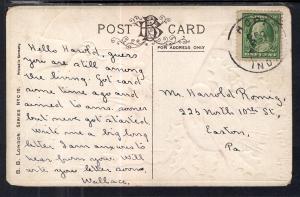 POST CARD
B
FOR ADDRESS ONLY
Hello Harold, guess
you are still among
the living. Got card
some time ago and
aimed to ans. sooner
but never got started
Write me a big long
letter I am anxious to
hear from you. Will
write you letter soon.
Wallace.
Mr. Harrold Romig,
225 North 10th St,
Easton,
Pa
IND
B. B. LONDON SERIES NO. E
Printed in Germany